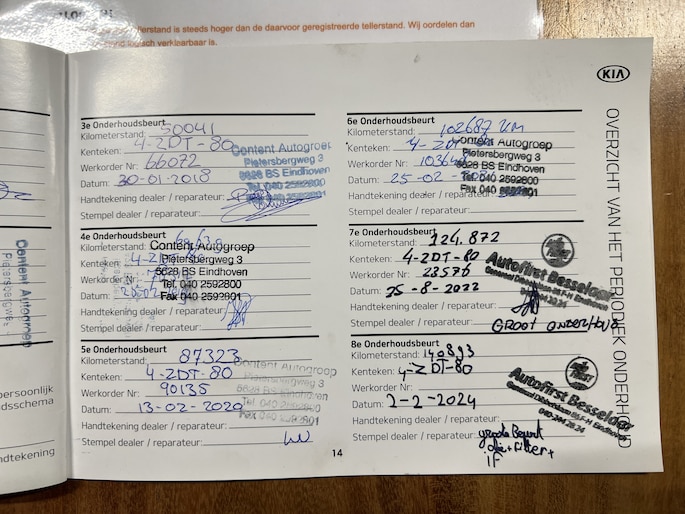 tellerstand is steeds hoger dan de daarvoor geregistreerde tellerstand. Wij oordelen dan
logisch verklaarbaar is.
KIA
OVERZICHT VAN HET PERIODIEK ONDERHOUD
Content Autogroep
Pietersbergweg
persoonlijk
dsschema
ndtekening
3e Onderhoudsbeurt
Kilometerstand: 50041
Kenteken: 4-ZDT-80
Werkorder Nr: 66072
Datum: 30-01-2018
Handtekening dealer / reparateur:
Stempel dealer / reparateur:
Content Autogroep
Pietersbergweg 3
5628 BS Eindhoven
Tel. 040 2592800
Fax 040
4e Onderhoudsbeurt
Kilometerstand:
Kenteken:
Werkorder Nr:
Datum:
Handtekening dealer / reparateur:
Stempel dealer / reparateur:
Content Autogroep
Pietersbergweg 3
5628 BS Eindhoven
Tel. 040 2592800
Fax 040 2592801
5e Onderhoudsbeurt
Kilometerstand: 87323
Kenteken: 4-ZDT-80
Werkorder Nr: 90135
Datum: 13-02-2020
Handtekening dealer / reparateur:
Stempel dealer / reparateur:
Content Autogroep
Pietersbergweg 3
5628 BS Eindhoven
Tel. 040
Fax 040
14
6e Onderhoudsbeurt
Kilometerstand: 102687 KM
Kenteken: 4-ZDT
Werkorder Nr:
Datum: 25-02-
Handtekening dealer / reparateur:
Stempel dealer / reparateur:
Content Autogroep
Pietersbergweg 3
5628 BS Eindhoven
Tel. 040 2592800
Fax 040
7e Onderhoudsbeurt
Kilometerstand: 124.872
Kenteken: 4-ZDT-80
Werkorder Nr: 23576
Datum: 25-8-2022
Handtekening dealer / reparateur:
Stempel dealer / reparateur: GROOT ONDERHOUD
Autofirst Besselaar
8e Onderhoudsbeurt
Kilometerstand: 140893
Kenteken: 4-ZDT-80
Werkorder Nr:
Datum: 2-2-2024
Handtekening dealer / reparateur:
Stempel dealer / reparateur: grote Beurt
olie + Filter +
iF
Autofirst Besselaar